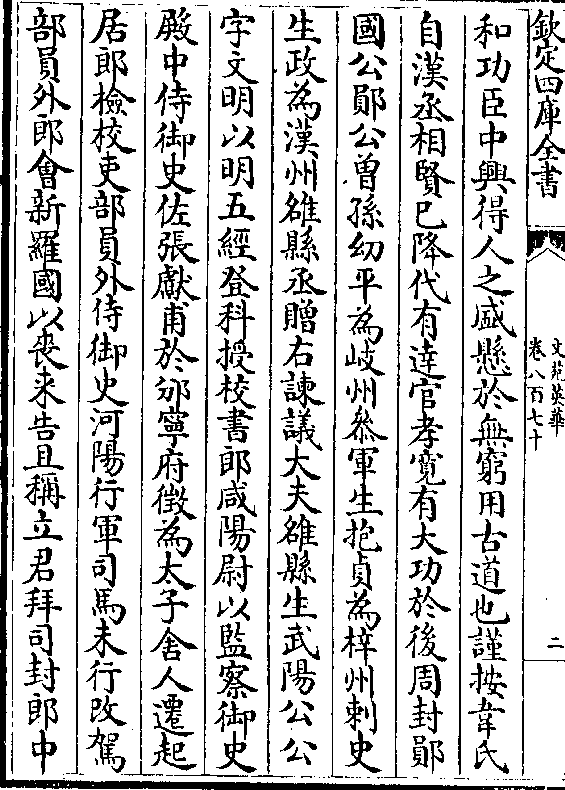 欽定四庫全書
文苑英華
卷八百七十
二
和功臣中興得人之盛懸於無窮用古道也謹按韋氏
自漢丞相賢已降代有達官孝寛有大功於後周封鄖
國公鄖公曽孫幼平為岐州叅軍生抱貞為梓州刺史
生政為漢州雒縣丞贈右諫議大夫雒縣生武陽公公
字文明以明五經登科授校書郎咸陽尉以監察御史
殿中侍御史佐張獻甫於邠寧府徴為太子舍人遷起
居郎檢校吏部員外侍御史河陽行軍司馬未行改駕
部員外郎會新羅國以喪來告且稱立君拜司封郎中